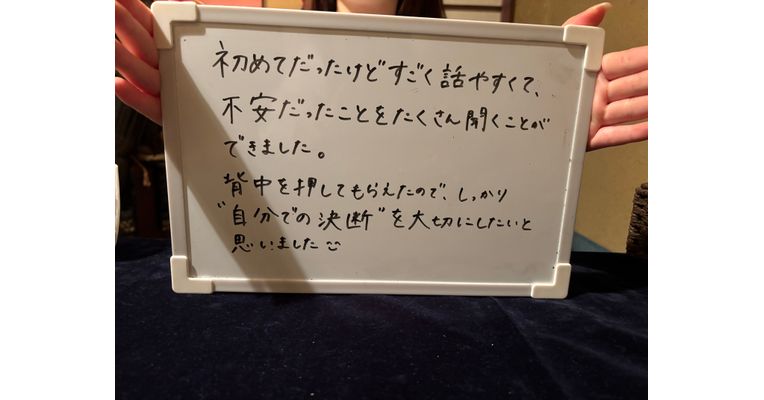 初めてだったけどすごく話やすくて、
不安だったことをたくさん聞くことが
できました。
背中を押してもらえたので、しっかり
"自分での決断"を大切にしたいと
思いました☺